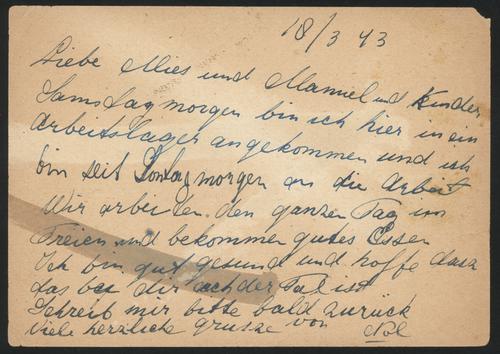 18/3 43
Liebe Mies und Manuel und Kinder
Samstagmorgen bin ich hier in ein
Arbeitslager angekommen und ich
bin seit Sontagmorgen an die Arbeit
Wir arbeiten den ganzen Tag im
Freien und bekommen gutes Essen
Ich bin gut gesund und hoffe dasz
das bei dir auch der Fal ist
Schreib mir bitte bald zurück
Viele herzliche grusze von